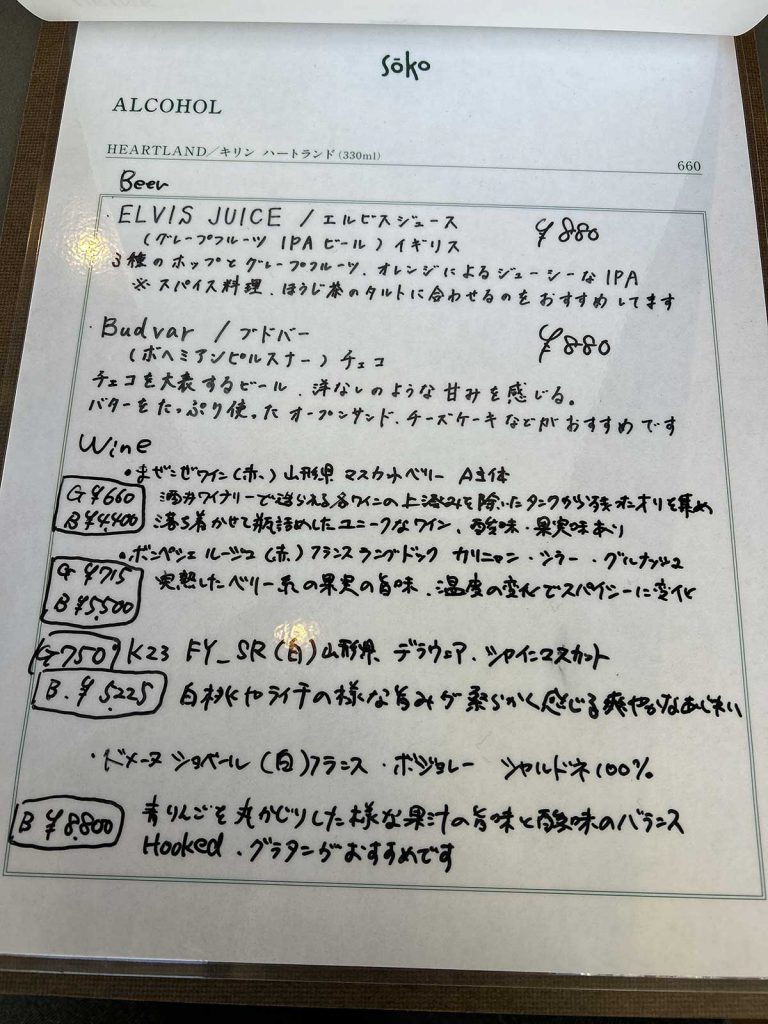 sōko
ALCOHOL
HEARTLAND/キリン ハートランド(330ml)
660
Beer
・ELVIS JUICE / エルビスジュース ¥880
(グレープフルーツ IPAビール) イギリス
3種のホップとグレープフルーツ、オレンジによるジューシーなIPA
※スパイス料理、ほうじ茶のタルトに合わせるのをおすすめしてます
・Budvar / ブドバー ¥880
(ボヘミアンピルスナー) チェコ
チェコを代表するビール、洋なしのような甘みを感じる。
バターをたっぷり使ったオープンサンド、チーズケーキなどがおすすめです
Wine
・まぜこぜワイン(赤) 山形県 マスカットベリー A主体
G ¥660 酒井ワイナリーで造られる各ワインの上澄みを除いたタンクから残ったオリを集め
B ¥4,400 落ち着かせて瓶詰めしたユニークなワイン、酸味・果実味あり
・ボンペシェ ルージュ(赤) フランス ラングドック カリニャン・シラー・グルナッシュ
G ¥715 完熟したベリー系の果実の旨味、温度の変化でスパイシーに変化
B ¥5,500
G 750 K23 FY_SR (白) 山形県 デラウェア、シャインマスカット
B. ¥5225 白桃やライチの様な旨みが柔らかく感じる爽やかなあじわい
・ドメーヌ ショベール (白) フランス・ボジョレー シャルドネ100%
B ¥8,800 青りんごを丸かじりした様な果汁の旨味と酸味のバランス
Hooked、グラタンがおすすめです